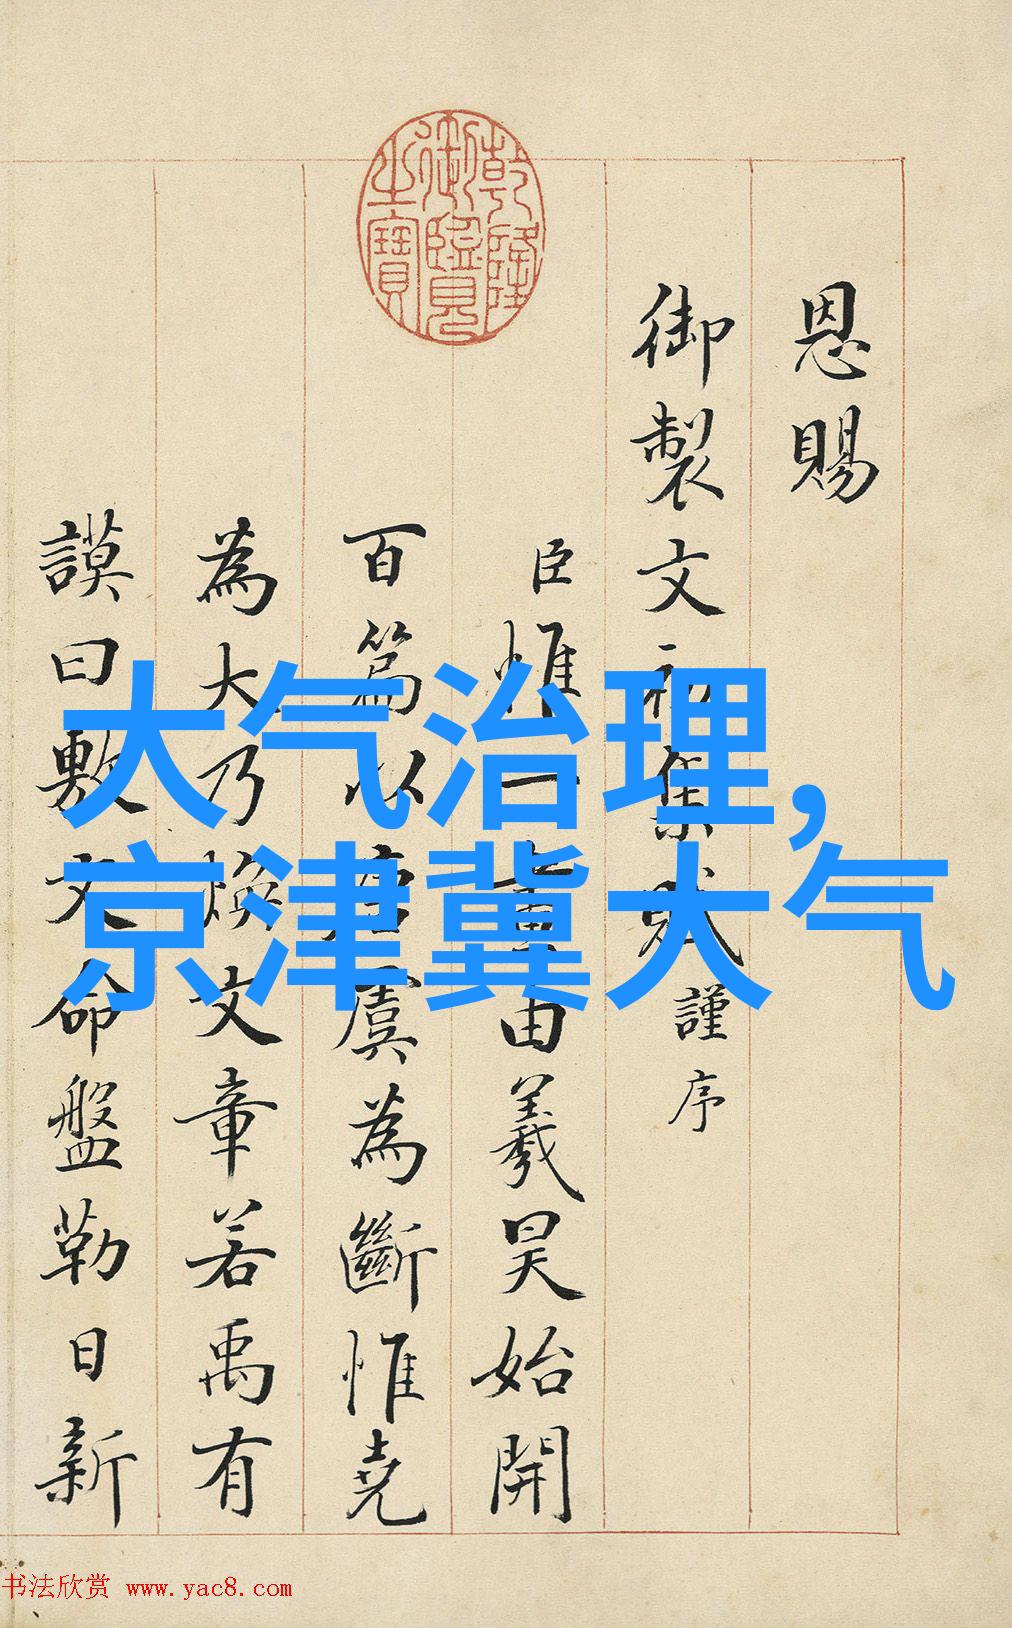 乾隆御覽之寶
恩賜
御製文初集賦謹序
臣惟一畫由羲昊始開
百篇以唐虞為斷惟堯
為大乃煥文章若禹有
謨曰敷文命盤勒日新
大气治理,
京津冀大气
书法欣赏 www.yac8.com